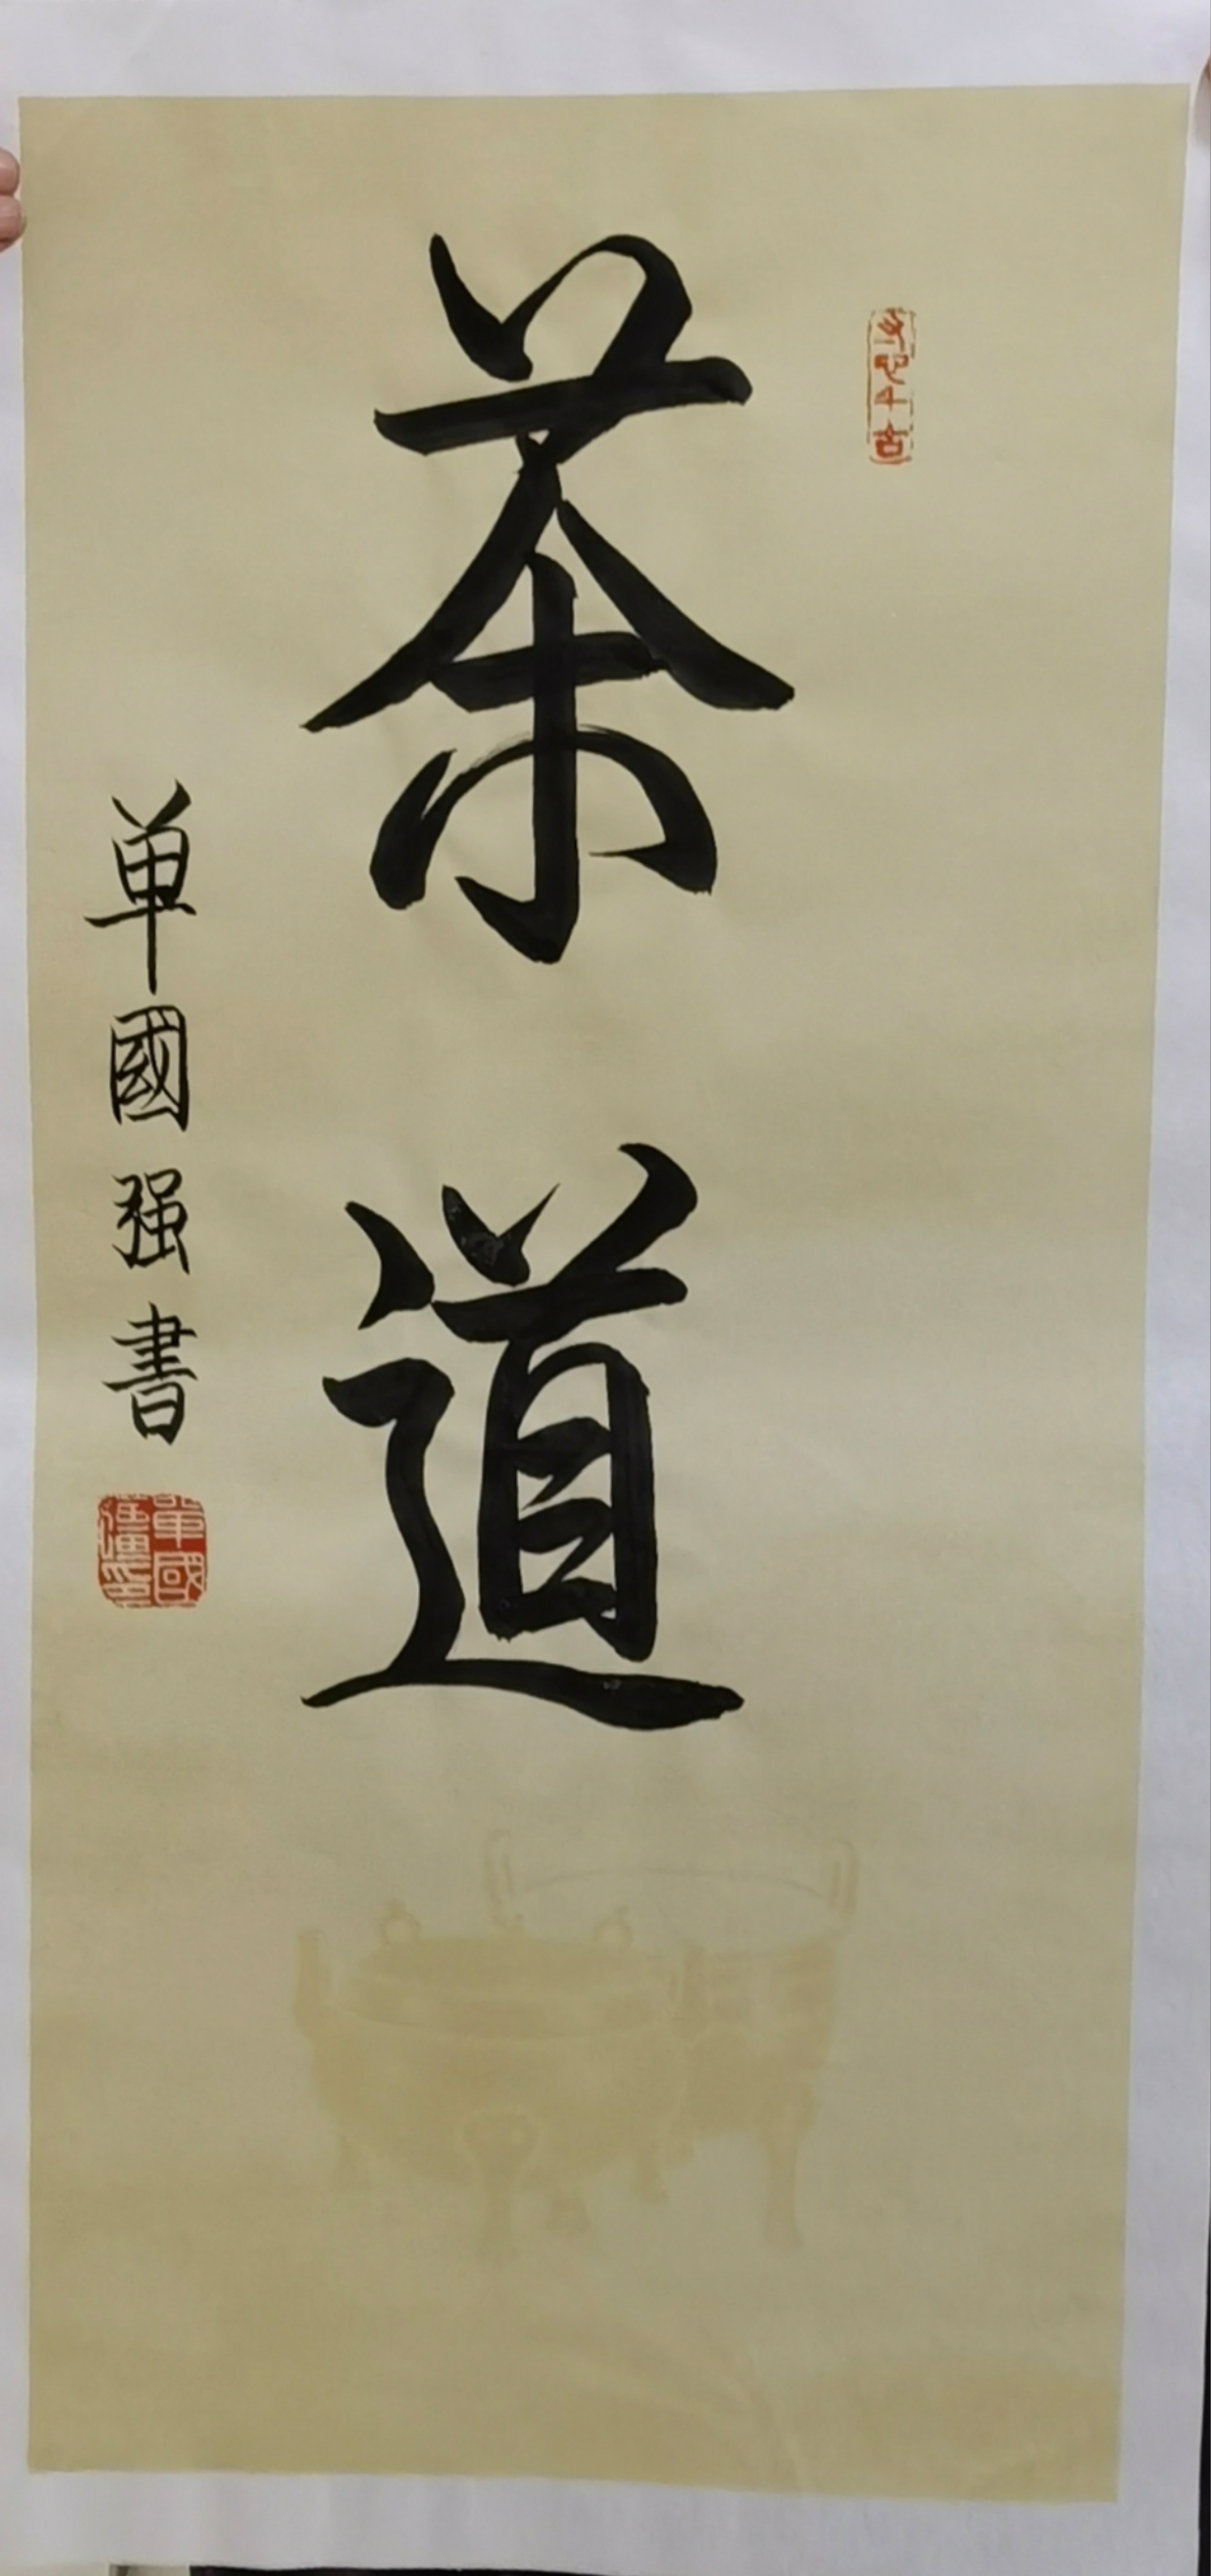 茶道
单國强書
單國疆印